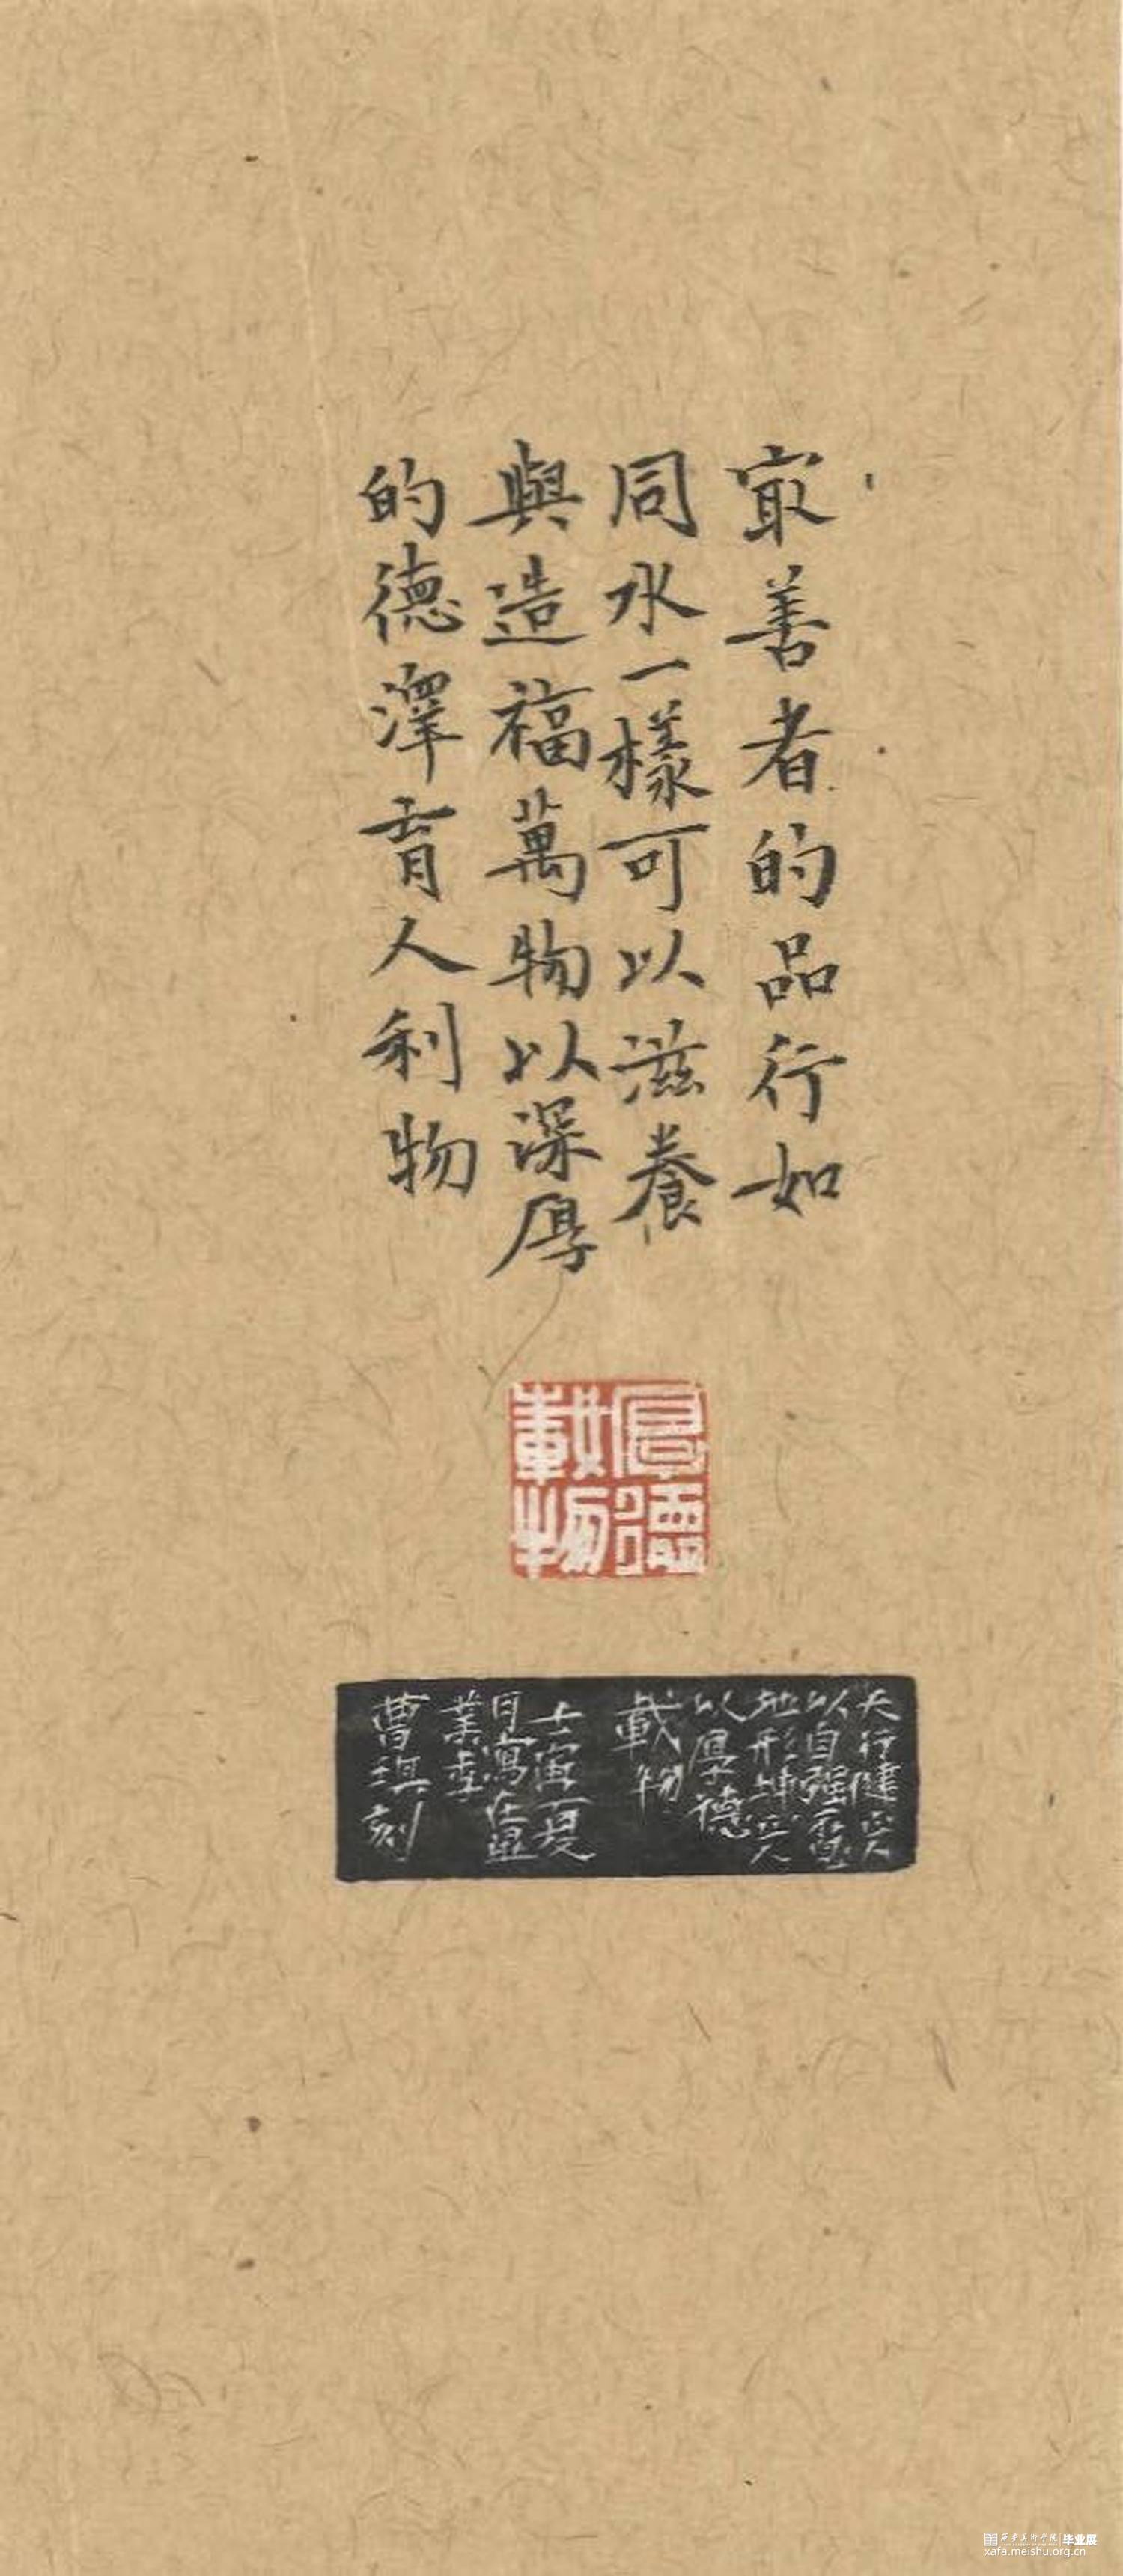 寂善者的品行如
同水一樣可以滋養
與造福萬物以深厚
的德澤育人利物
厚德
載物
天行健
以自强
地形坤
以厚德
載物
壬寅夏
月寫在
業季
曹琪刻
西安美術學院 毕业展
xafa.meishu.org.cn